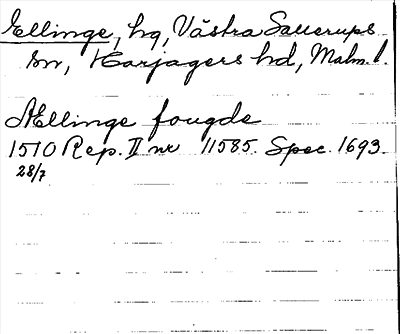 Ellinge, hg, Västra Sallerups
sn, Harjagers hd, Malm. l.
Ællinge fougde
1510 Rep. II nr 11585. Spec. 1693.
28/7